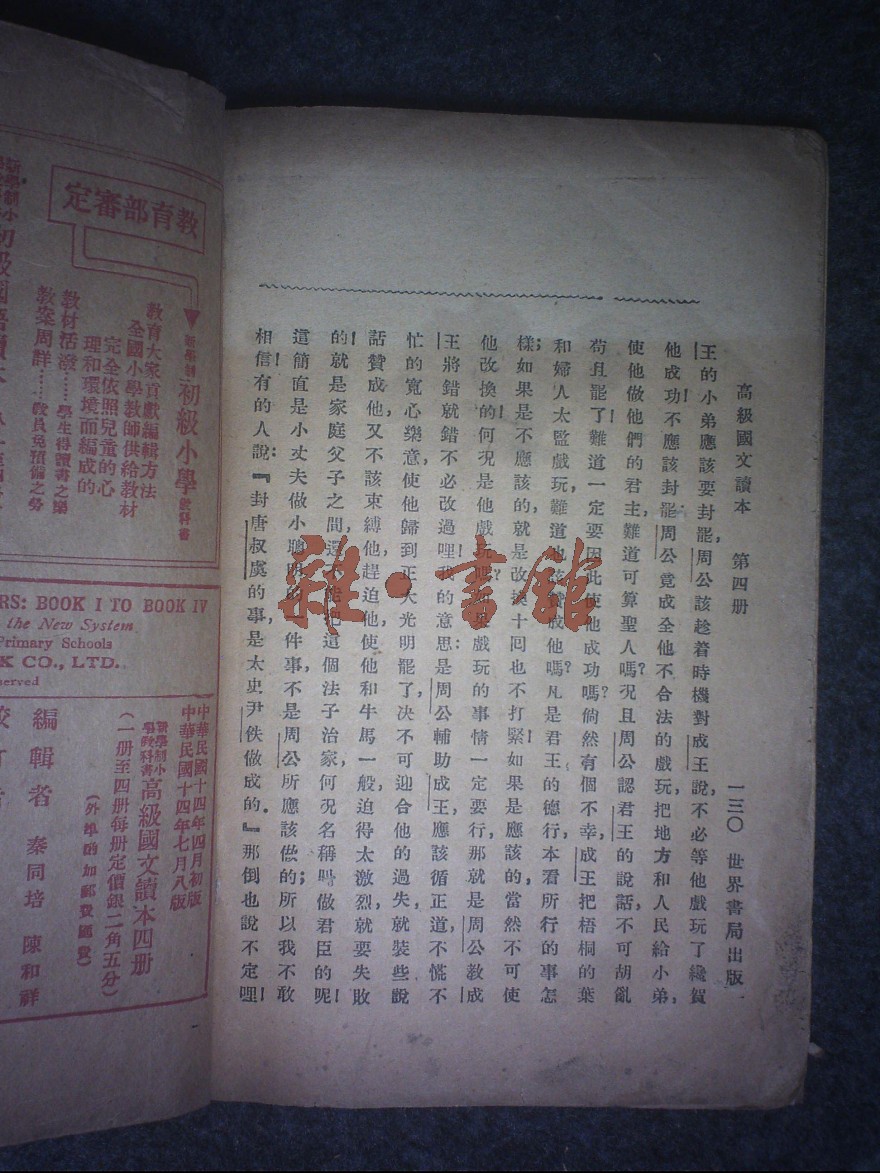 高級國文讀本　第四册　一三〇　世界書局出版
王的小弟應該要封罷，周公該趁着時機對成王說，不必等他戲玩了纔賀
他成功！不應該封罷！周公竟成全他不合法的戲玩，把地方和人民給小弟，
使他做他們的君主，難道可算聖人嗎？況且周公認君王的說話，不可胡亂
苟且罷了！難道一定要因此使他成功嗎？倘然有個不幸，成王把梧桐的葉
和婦人太監戲玩，難道也該贊成他嗎？凡是君王的德行，本看所行的事怎
樣；如果是不應該的，就是改換十回也不打緊；如果是應該的，當然不可使
他改換的！何況是他戲玩嗎？如果戲玩的事情一定要行，那就是周公教成
王將錯就錯不必改過哩！我的意思：是周公輔助成王，應該循正道，不慌不
忙的寬心樂意，使他歸到正大光明罷了，决不可迎合他的過失，就裝些說
話贊成他，又不該束縛他，趕迫他，使他和牛馬一般，迫得太激烈，就要失敗
的！就是家庭父子之間，還不能把這個法子治家，何況名稱叫做君臣的呢！
這簡直是小丈夫做小聰明的一件事，不是周公所應該做的；所以我不敢
相信！有的人說：『封唐叔虞的事，是太史尹佚做成的。』那倒也說不定哩！
雜·書館
教育部審定
新學制初級小學教科書
教育大家貢獻編輯方法
全國小學教師供給教材
完全依照兒童的心
理和環境而編成的
教材活潑……學生得讀書之樂
教案周詳……教員免預備之勞
新學制小
初級國語讀本
RS: BOOK I TO BOOK IV
the New System
Primary Schools
K CO., LTD.
served
中華民國十四年四月初版
中華民國十四年七月八版
新學制小學教科書 高級國文讀本四册
（一册至四册每册定價銀二角五分）
（外埠酌加郵費匯費）
編輯者　秦同培　陳和祥